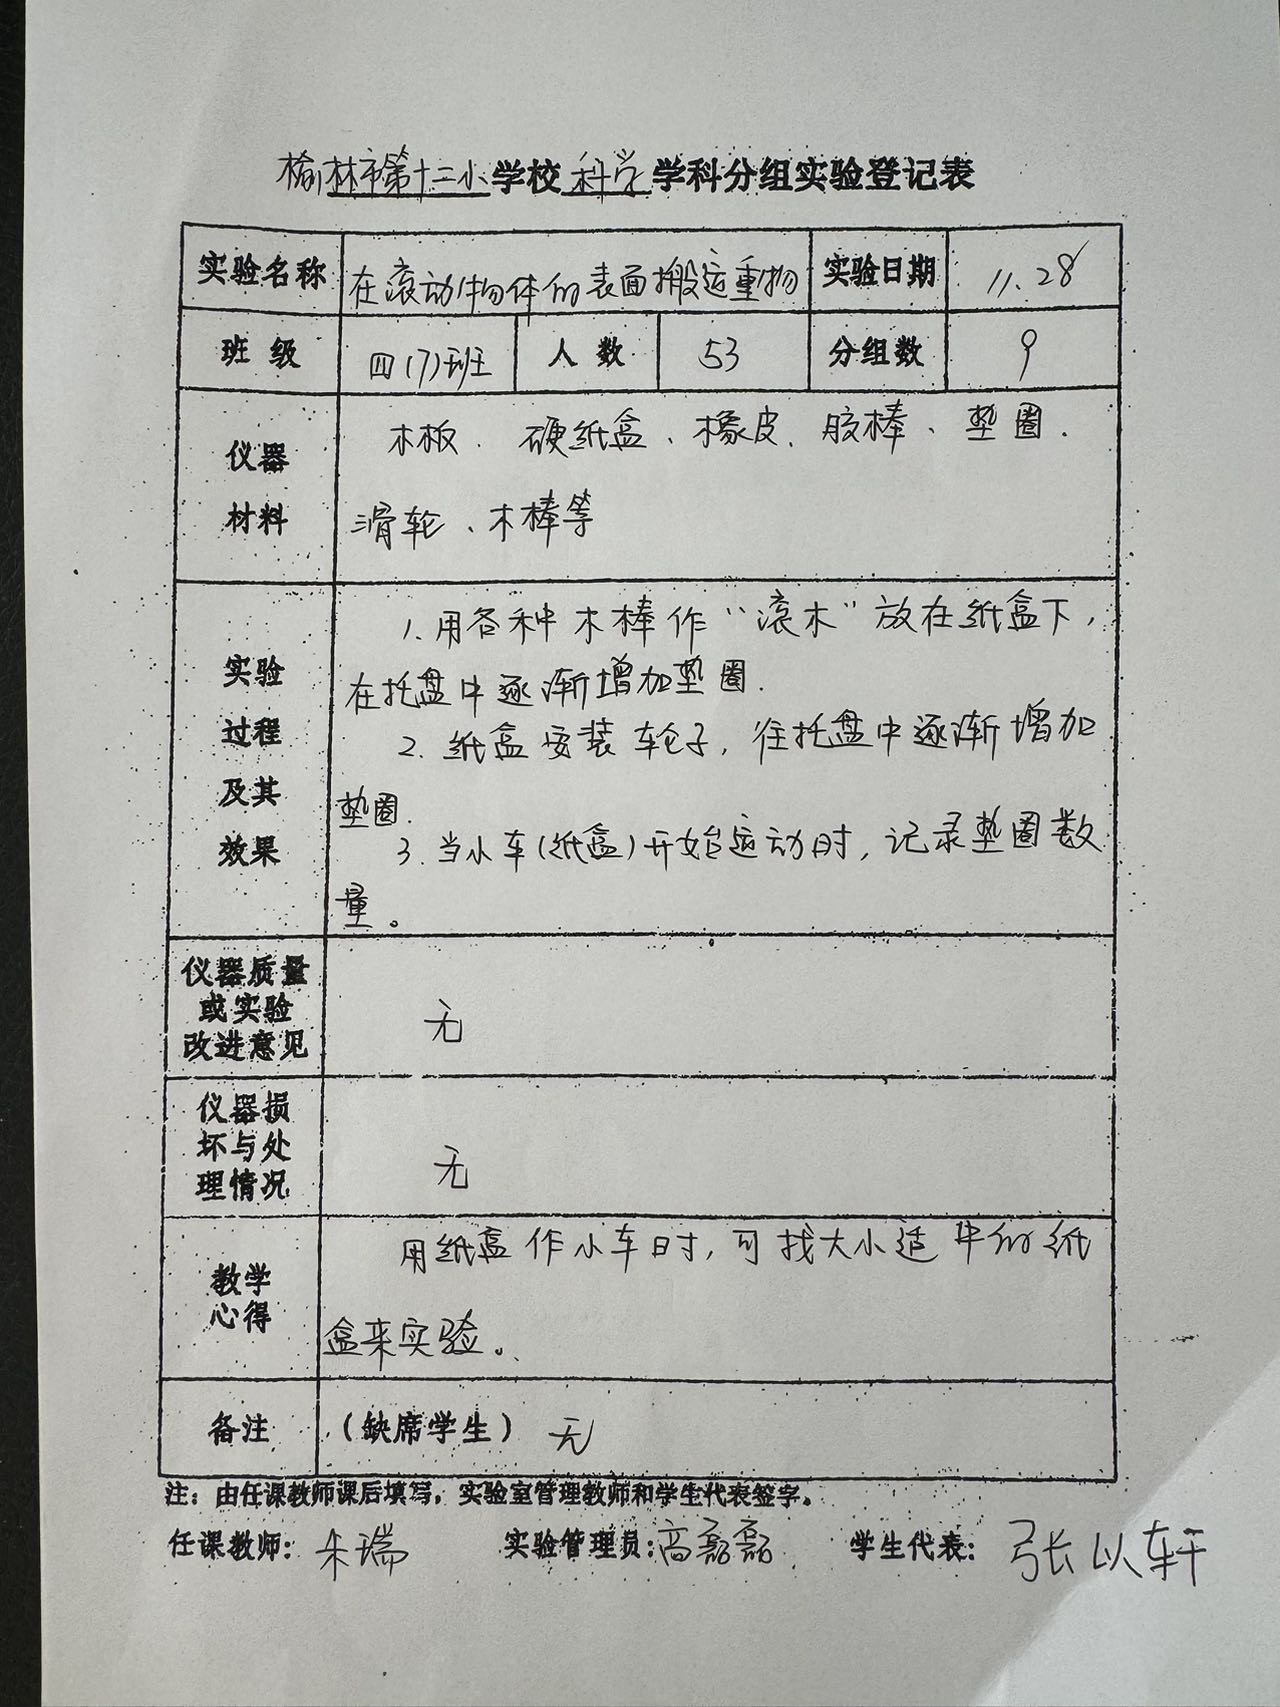 榆林市第十二小学校科学学科分组实验登记表
实验名称 在滚动物体的表面搬运重物 实验日期 11.28
班级 四(7)班 人数 53 分组数 9
仪器材料
木板、硬纸盒、橡皮、胶棒、垫圈、
滑轮、木棒等
实验过程及其效果
1.用各种木棒作“滚木”放在纸盒下,
在托盘中逐渐增加垫圈.
2.纸盒安装轮子,往托盘中逐渐增加
垫圈.
3.当小车(纸盒)开始运动时,记录垫圈数
量。
仪器质量
或实验
改进意见
无
仪器损
坏与处
理情况
无
教学
心得
用纸盒作小车时,可找大小适中的纸
盒来实验。
备注 (缺席学生) 无
注：由任课教师课后填写，实验室管理教师和学生代表签字。
任课教师: 朱瑞 实验管理员: 高磊磊 学生代表: 张以轩